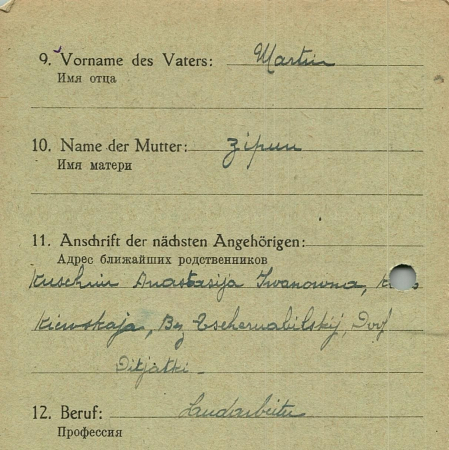 9. Vorname des Vaters: Martin
Имя отца
10. Name der Mutter: Zipun
Имя матери
11. Anschrift der nächsten Angehörigen:
Адрес ближайших родственников
Anastasija Iwanowna,
Kiewskaja, Bez Tschernabilskij, Dorf
Ditjatki
12. Beruf: Landarbeiter
Профессия